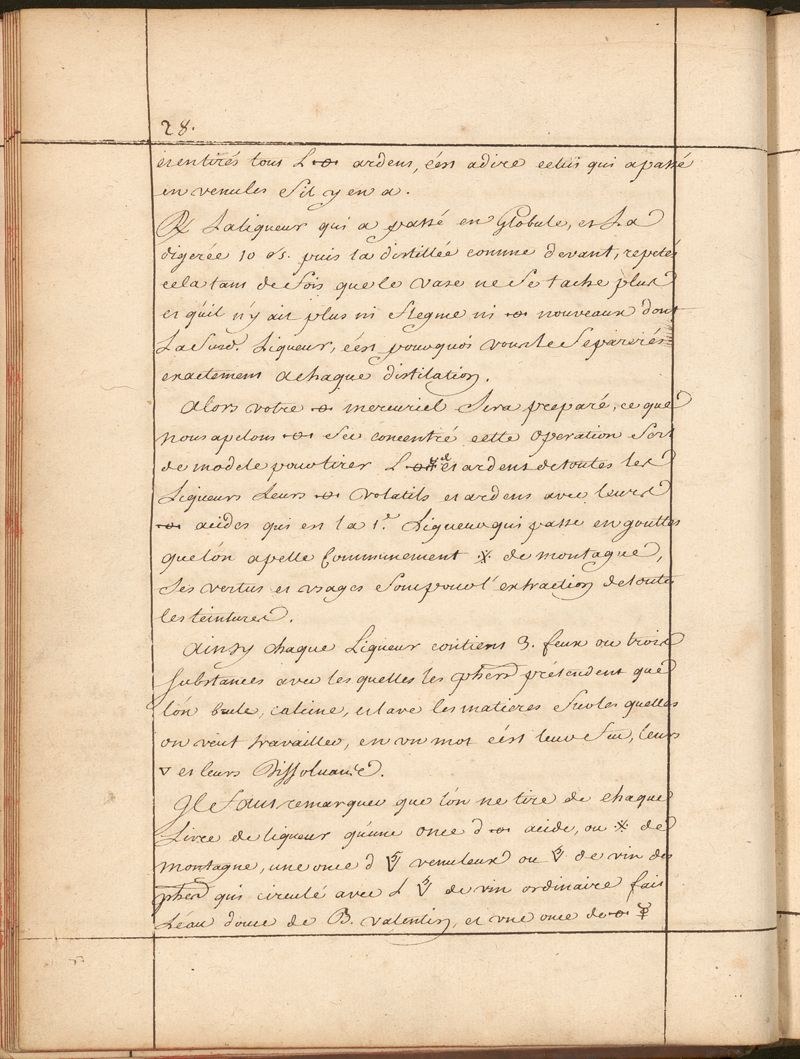 28.
en tirés tous L ardens, c'est adire celuÿ qui a passé
en venules s'il y en a.
℞ La liqueur qui a passé en Globule, et La
digerée 10 puis la distillée comme devant, repetés
cela tant de fois que le vase ne se tache plus
et qu'il n'y ait plus ni flegme ni nouveaux dont
La Liqueur, c'est pourquoi vous le separerés
exactement a chaque distilation.
Alors votre mercuriel sera preparé, ce que
nous apelons feu concentré cette operation sert
de modele pour tirer L et ardent de toutes les
Liqueurs Leurs volatils et ardens avec leurs
acides qui est la 1.re Liqueur qui passe en gouttes
que lón apelle Communement de montagne,
Ses vertus et usages sont pour l'extraction de toutes
les teintures.
Ainsy chaque Liqueur contient 3. feux ou trois
substances avec lesquelles les phers prétendent que
lón brule, calcine, et lave les matieres sur les quelles
on veut travailler, en un mot c'est leur feu, leurs
🜄 et leurs Dissoluant.
Il faut remarquer que lón ne tire de chaque
Livre de liqueur qu'une once d acide, ou de
montagne, une once d venuleux ou de vin des
phers qui circulé avec L de vin ordinaire fait
Léau douce de B. Valentin, et une once de